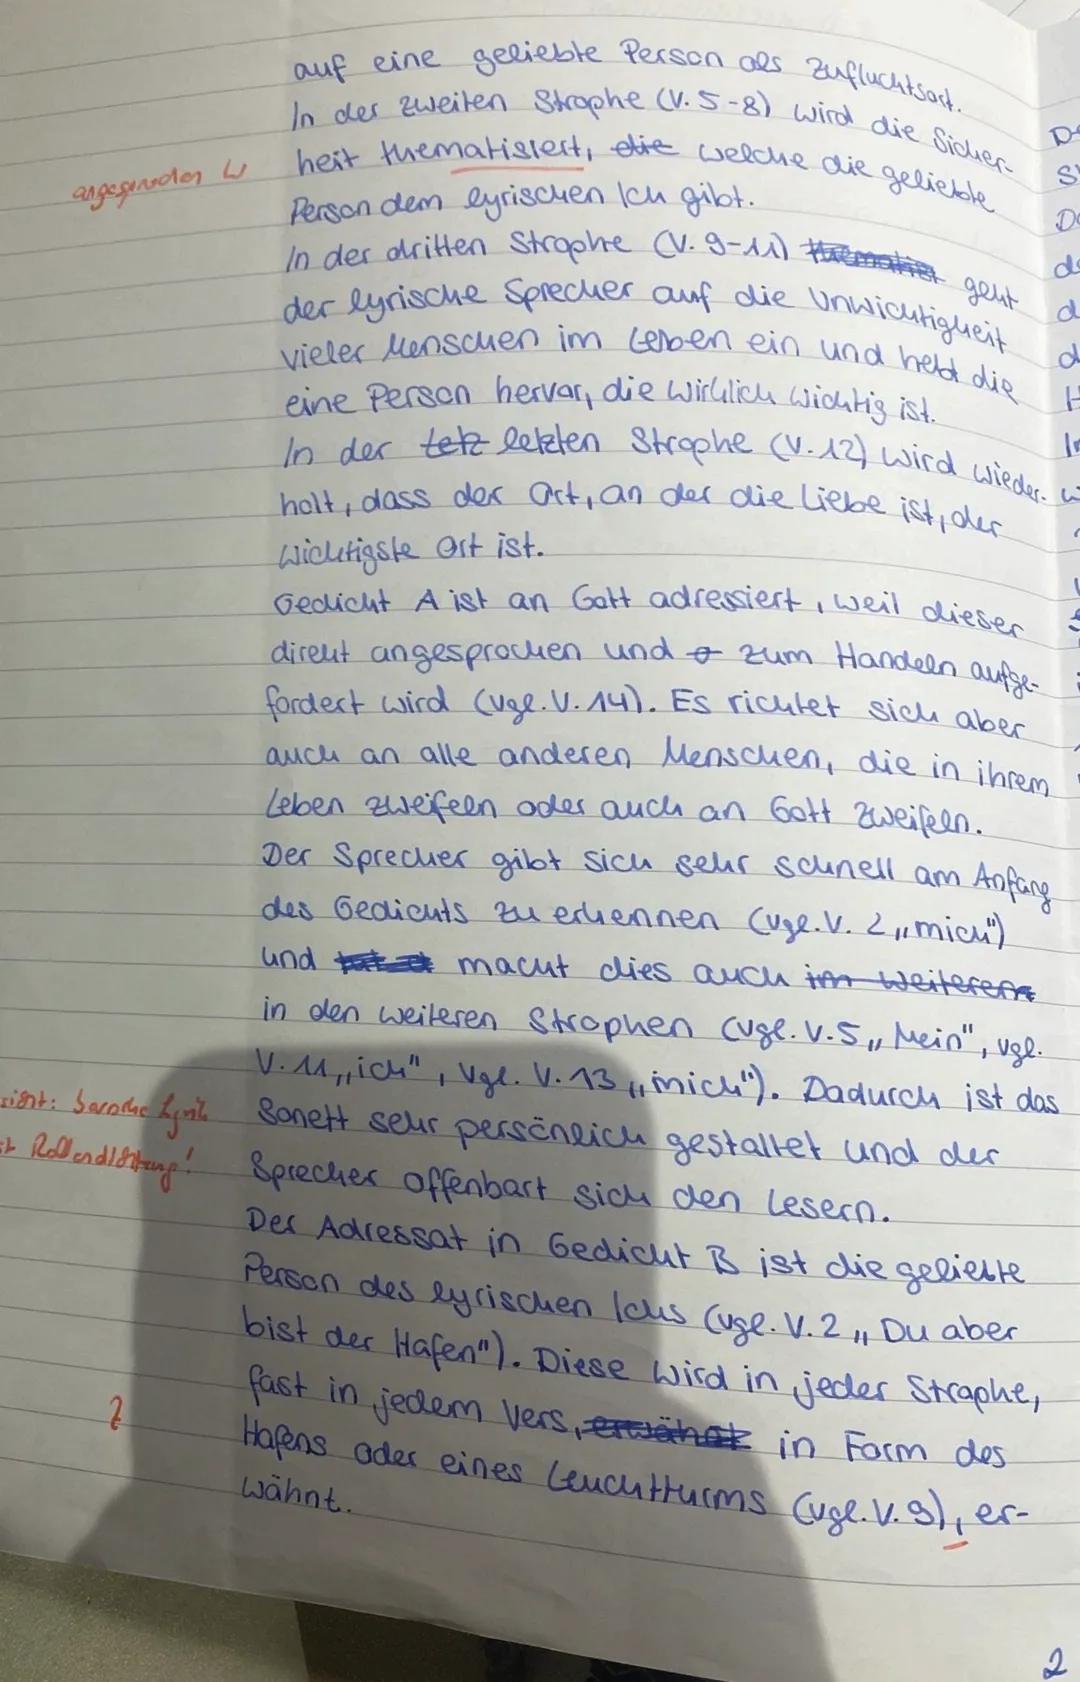 auf eine geliebte Person als Zufluchtsort.
In der zweiten Strophe (V. 5-8) wird die Sicher-
heit thematisiert, die welche die geliebte
angesprochen W
Person dem lyrischen Ich gibt.
In der dritten Strophe (V. 9-11) thematisi geht
der lyrische Sprecher auf die Unwichtigkeit
vieler Menschen im Leben ein und hebt die
eine Person hervor, die wirklich wichtig ist.
In der tetz letzten Strophe (V. 12) wird wieder-
holt, dass der Ort, an der die Liebe ist, der
wichtigste Ort ist.
Gedicht A ist an Gott adressiert, weil dieser
direkt angesprochen und zum Handeln aufge-
fordert wird (vgl. V. 14). Es richtet sich aber
auch an alle anderen Menschen, die in ihrem
Leben zweifeln oder auch an Gott zweifeln.
Der Sprecher gibt sich sehr schnell am Anfang
des Gedichts zu erkennen (vgl. V. 2 „mich")
und macht dies auch im weiteren
in den weiteren Strophen (vgl. V. 5 „Mein", vgl.
V. 11 „ich", vgl. V. 13 „mich"). Dadurch ist das
Sonett sehr persönlich gestaltet und der
Sprecher offenbart sich den Lesern.
: barocke Lyrik
Rollendichtung!
Der Adressat in Gedicht B ist die geliebte
Person des lyrischen Ichs (vgl. V. 2 „Du aber
bist der Hafen"). Diese wird in jeder Strophe,
fast in jedem Vers, erwähnt in Form des
Z
Hafens oder eines Leuchtturms (vgl. V. 9), er-
wähnt.
2